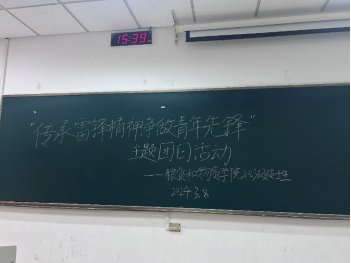 15:39
“传承雷锋精神争做青年先锋”
主题团日活动
——粮食和物资学院
2024.3.8